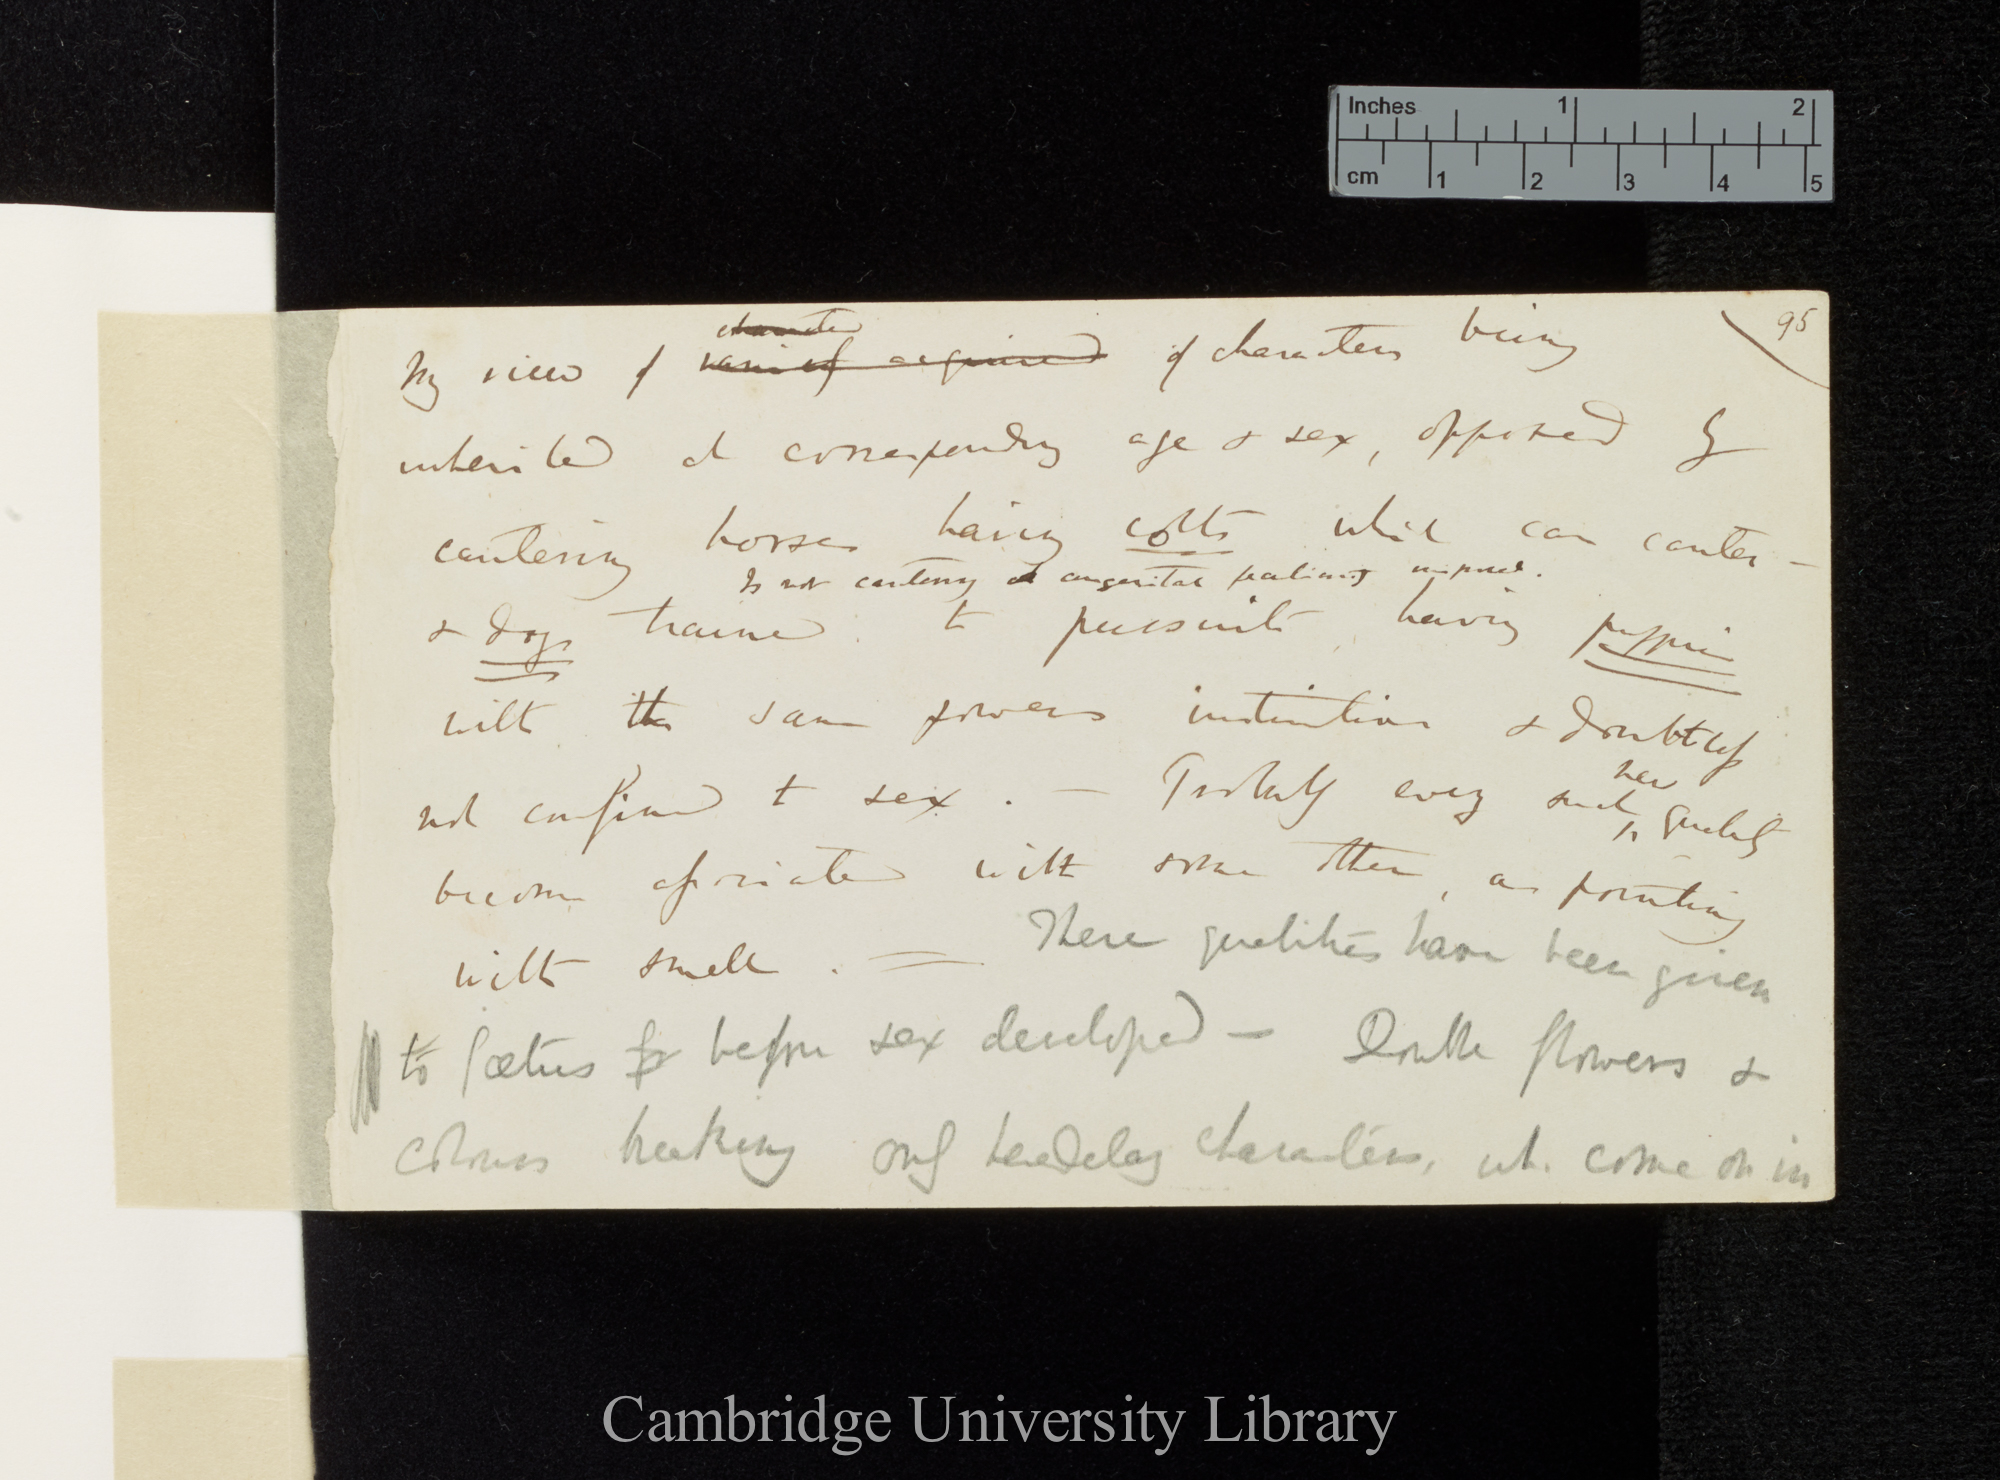 Inches 1 2
cm 1 2 3 4 5
95
character
My view of varieties acquired of characters being
inherited at corresponding age & sex, opposed by
cantering horses having colts which can canter —
Is not cantering a congenital peculiarity
& dogs trained to pursuit having puppies
with the same powers instinctive & doubtless
not confined to sex. — Probably every such new quality
become associated with some other, as pointing
with smell. — These qualities have been given
to foetus before sex developed — Double flowers &
colours breaking only hereditary characters, wh. come on in
Cambridge University Library